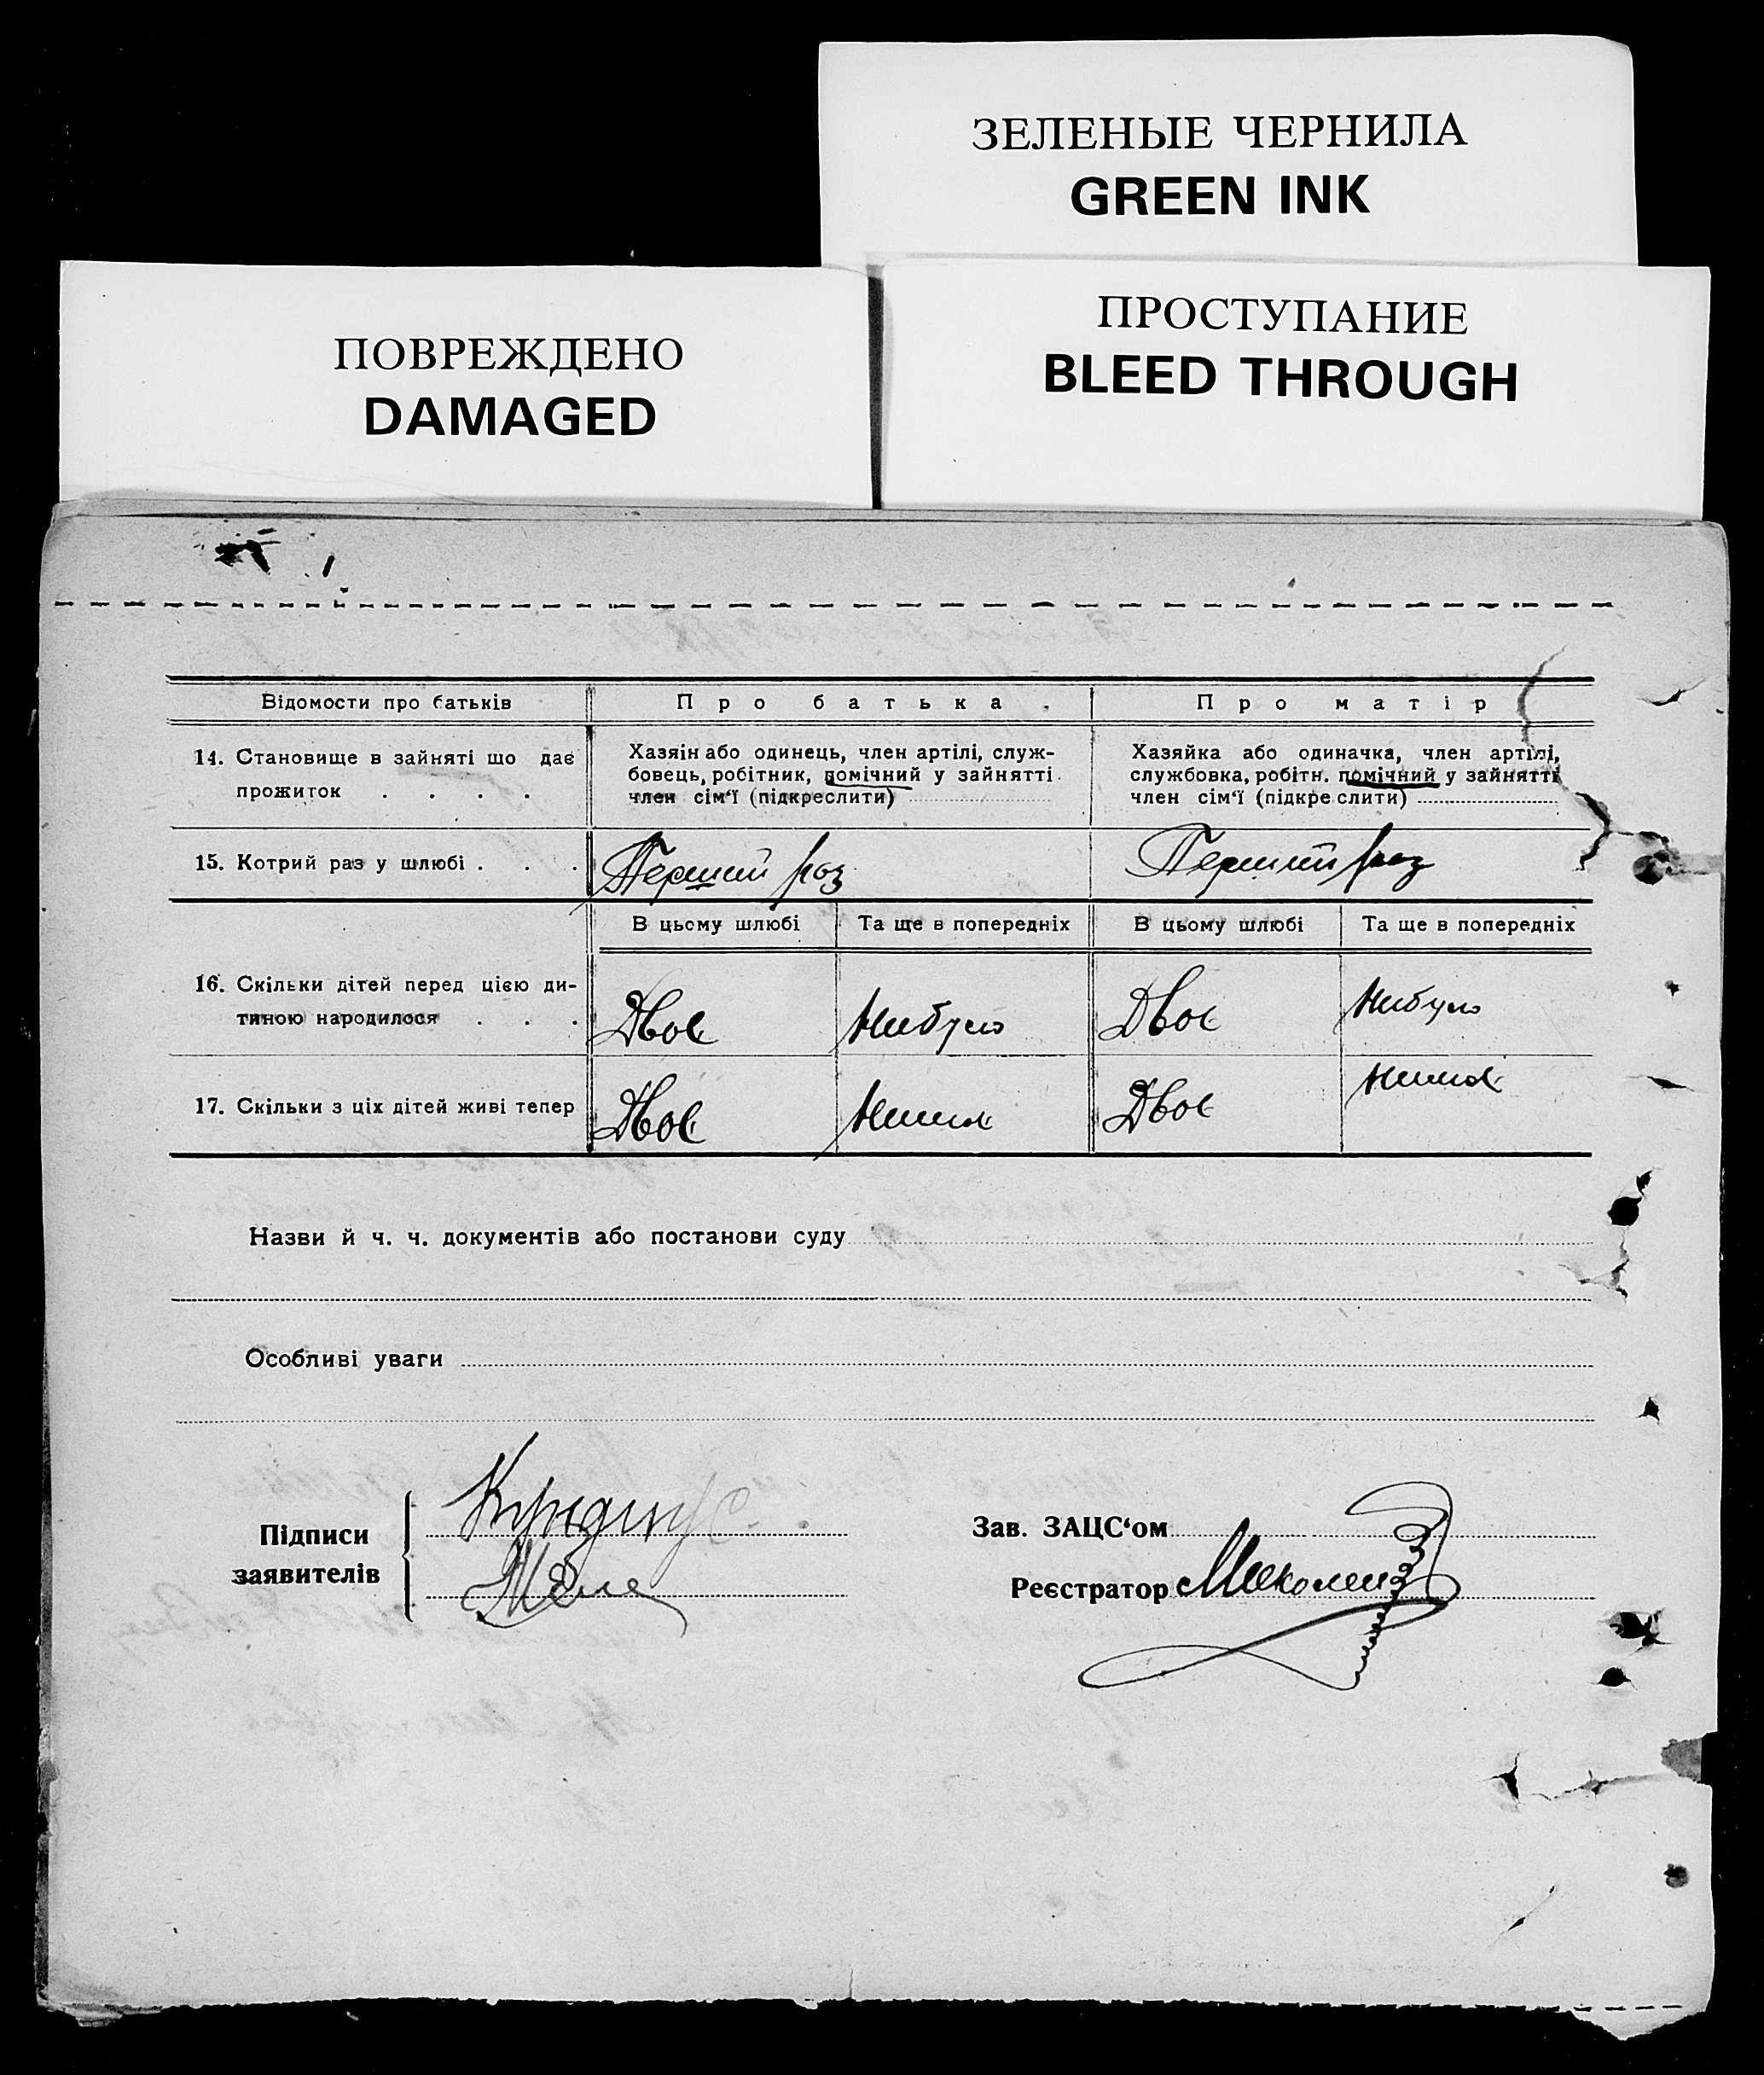 ЗЕЛЕНЫЕ ЧЕРНИЛА
GREEN INK
ПРОСТУПАНИЕ
BLEED THROUGH
ПОВРЕЖДЕНО
DAMAGED
Відомости про батьків
Про батька.
Про матір
14. Становище в зайняті що дає
прожиток . . . .
Хазяін або одинець, член артілі, служ-
бовець, робітник, помічний у зайнятті
член сім‘ї (підкреслити)
Хазяйка або одиначка, член артілі,
службовка, робітн. помічний у зайнятті
член сім‘ї (підкреслити)
15. Котрий раз у шлюбі . . .
Перший раз
Перший раз
В цьому шлюбі
Та ще в попередніх
В цьому шлюбі
Та ще в попередніх
16. Скільки дітей перед цією ди-
тиною народилося . . .
Двоє
Небуло
Двоє
Небуло
17. Скільки з ціх дітей живі тепер
Двоє
Немає
Двоє
Немає
Назви й ч. ч. документів або постанови суду
Особливі уваги
Підписи
заявителів
Зав. ЗАЦС‘ом
Реєстратор